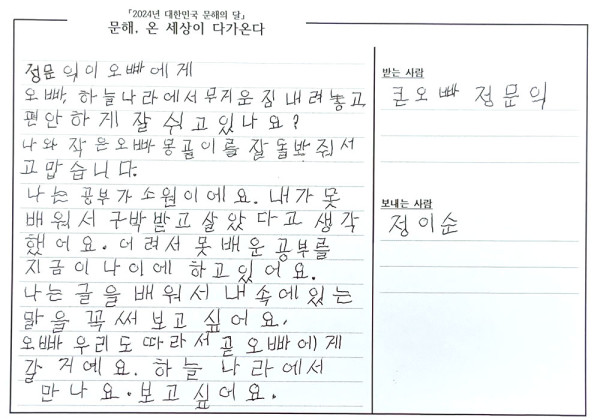 「2024년 대한민국 문해의 달」
문해, 온 세상이 다가온다
정문익이 오빠에게
오빠, 하늘나라에서 무거운 짐 내려놓고
편안하게 잘 쉬고 있나요?
나와 작은오빠 몽곱이를 잘 돌봐줘서
고맙습니다.
나는 공부가 소원이에요. 내가 못
배워서 구박받고 살았다고 생각
했어요. 어려서 못 배운 공부를
지금 이 나이에 하고 있어요.
나는 글을 배워서 내 속에 있는
말을 꼭 써 보고 싶어요.
오빠 우리도 따라서 곧 오빠에게
갈 거예요. 하늘 나라에서
만나요. 보고 싶어요.
받는 사람
큰오빠 정문익
보내는 사람
정이순